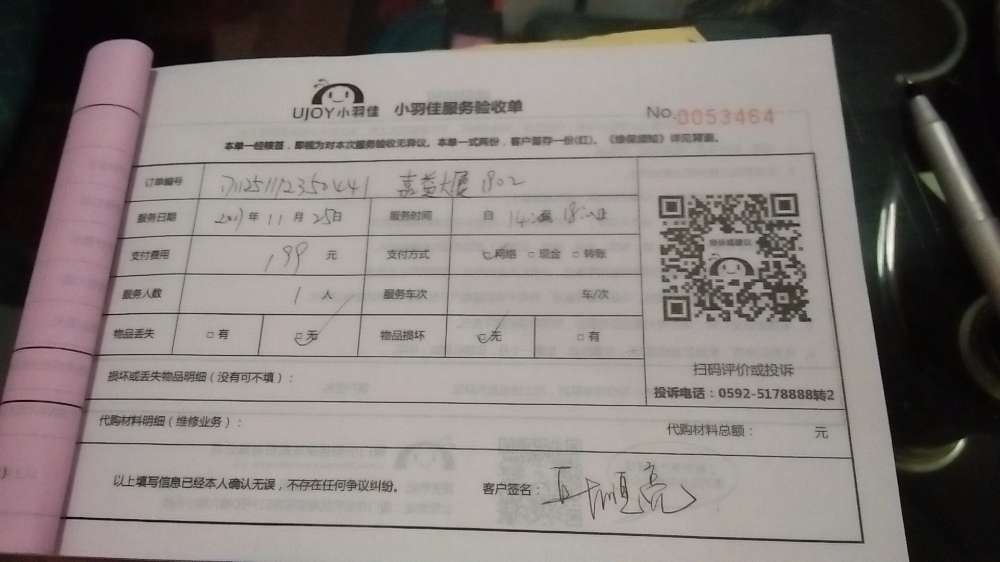 UJOY小羽佳 小羽佳服务验收单
No.0053464
本单一经核签，即视为对本次服务验收无异议。本单一式两份，客户留存一份(红)。《维保须知》详见背面。
订单编号 1802
服务日期 2019年11月25日 服务时间 自 14:00至18:00
支付费用 199 元 支付方式 网络 □现金 □转账
服务人数 1 人 服务车次 车/次
物品丢失 □有 无 物品损坏 无 □有
投诉或建议
扫码评价或投诉
投诉电话：0592-5178888转2
损坏或丢失物品明细（没有可不填）：
代购材料明细（维修业务）： 代购材料总额： 元
以上填写信息已经本人确认无误，不存在任何争议纠纷。 客户签名：